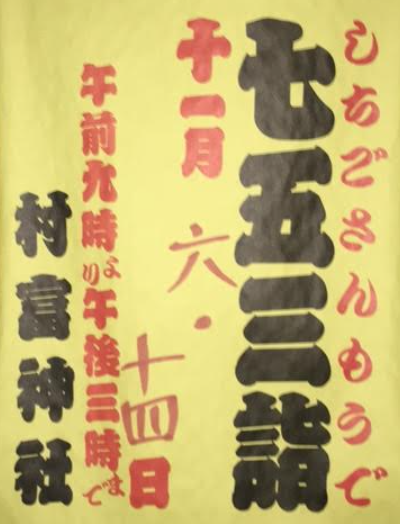 しちごさんもうで
七五三詣
十一月 六・十四日
午前九時より午後三時まで
村富神社